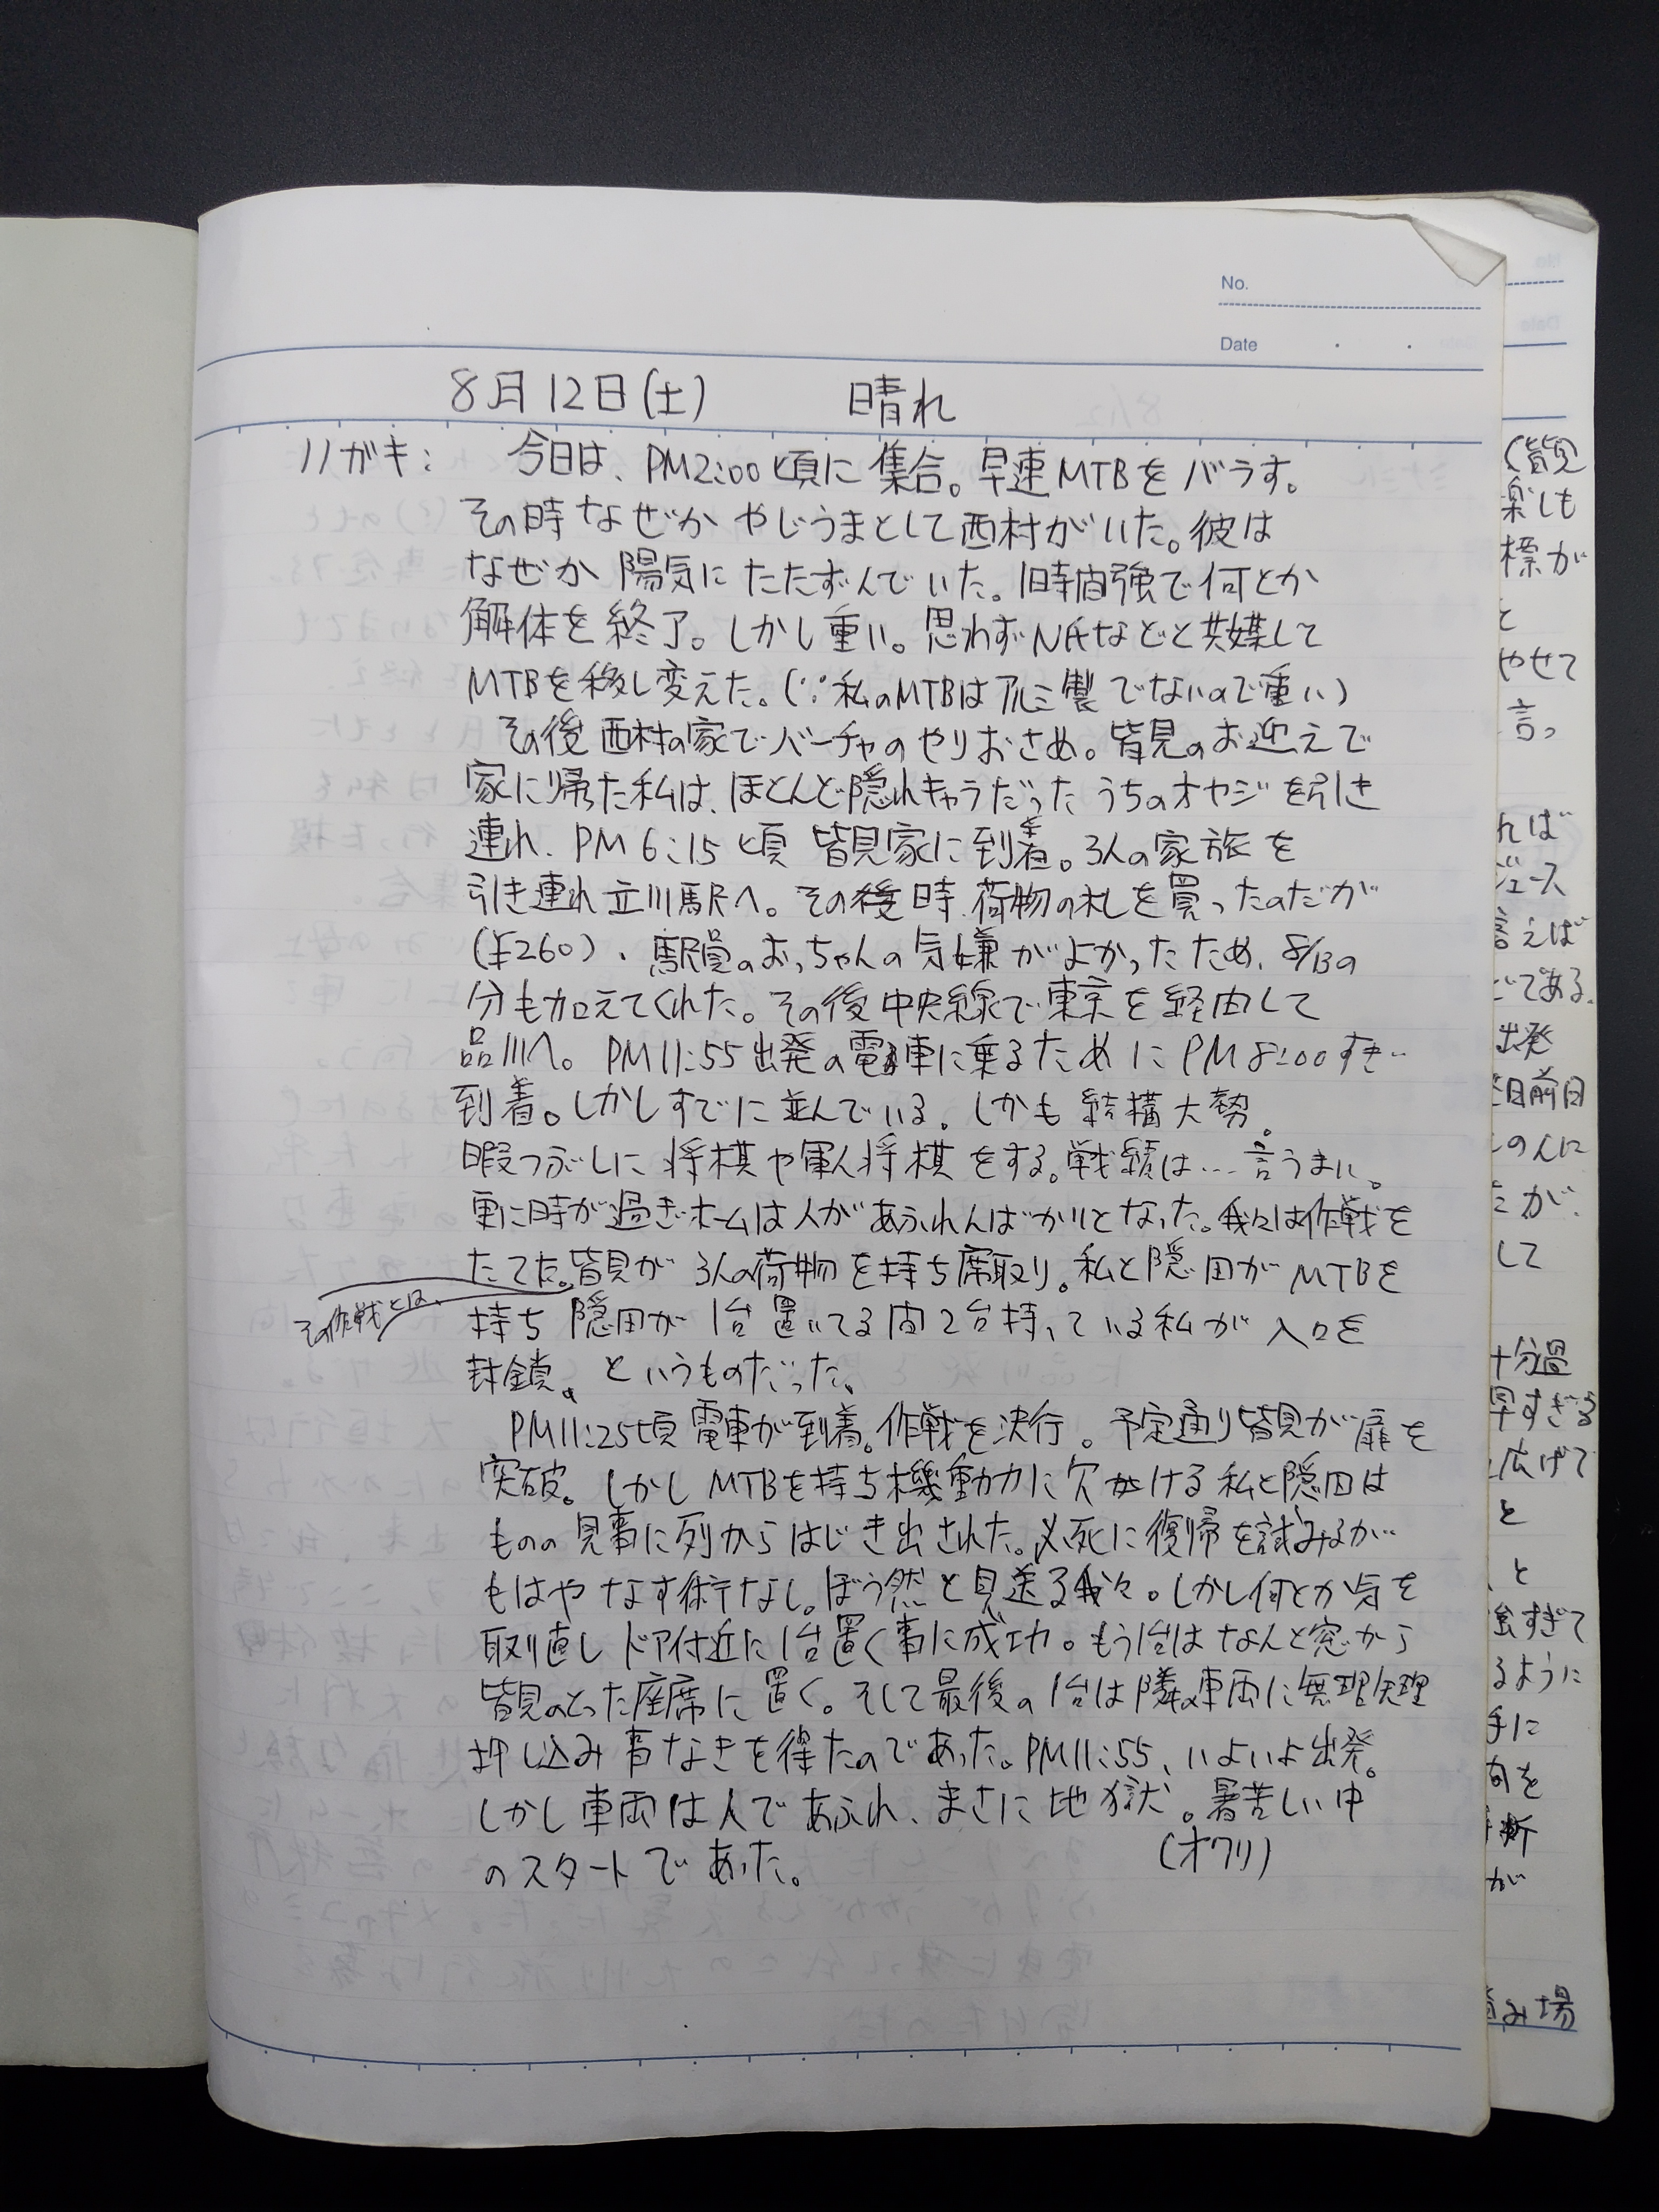 No.
Date
8月12日(土) 晴れ
ハガキ: 今日は、PM2:00頃に集合。早速MTBをバラす。
その時なぜかやじうまとして西村がいた。彼は
なぜか陽気にたたずんでいた。1時間強で何とか
解体を終了。しかし重い。思わずN氏などと共謀して
MTBを移し変えた。(∵私のMTBはアルミ製でないので重い)
その後西村の家でバーチャのやりおさめ。皆見のお迎えで
家に帰った私は、ほとんど隠れキャラだったうちのオヤジを引き
連れ、PM6:15頃皆見家に到着。3人の家族を
引き連れ立川駅へ。その後時荷物の札を買ったのだが
(¥260)、駅員のおっちゃんの気嫌がよかったため、8/13の
分も加えてくれた。その後中央線で東京を経由して
品川へ。PM11:55出発の電車に乗るためにPM8:00すぎ
到着。しかしすでに並んでいる。しかも結構大勢。
暇つぶしに将棋や軍人将棋をする。戦績は…言うまい。
更に時が過ぎホームは人があふれんばかりとなった。我々は作戦を
たてた。皆見が3人の荷物を持ち席取り。私と隠田がMTBを
その作戦とは、
持ち隠田が1台置いてる間2台持っている私が入口を
封鎖。というものだった。
PM11:25頃電車が到着。作戦を決行。予定通り皆見が扉を
突破。しかしMTBを持ち機動力に欠ける私と隠田は
ものの見事に列からはじき出された。必死に復帰を試みるが
もはやなす術なし。ぼう然と見送る我々。しかし何とか気を
取り直しドア付近に1台置く事に成功。もう1台はなんと窓から
皆見のとった座席に置く。そして最後の1台は隣の車両に無理矢理
押し込み事なきを得たのであった。PM11:55、いよいよ出発。
しかし車両は人であふれ、まさに地獄。暑苦しい中
のスタートであった。 (オワリ)
(皆見
楽しも
標が
と
やせて
言っ
れば
ジュース
言えば
どである。
出発
前日
の人に
が、
して
十分過
早すぎる
広げて
と
と
すぎて
るように
手に
向を
断
が
み場